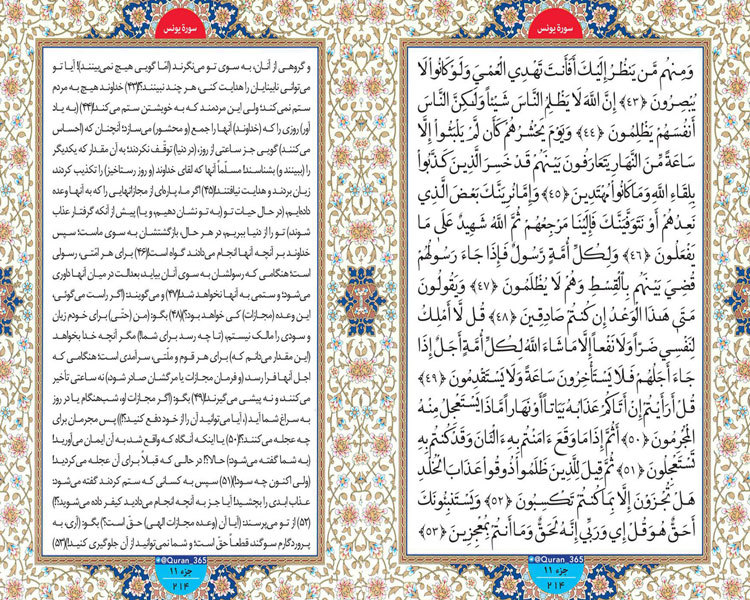 سورة یونس
وَمِنهُم مَّن يَنظُرُ إِلَيكَ أَفَأَنتَ تَهدِي العُميَ وَلَو كَانُوا لَا
يُبصِرُونَ ﴿۴۳﴾ إِنَّ اللَّهَ لَا يَظلِمُ النَّاسَ شَيئًا وَلَٰكِنَّ النَّاسَ
أَنفُسَهُم يَظلِمُونَ ﴿۴۴﴾ وَيَومَ يَحشُرُهُم كَأَن لَّم يَلبَثُوا إِلَّا
سَاعَةً مِّنَ النَّهَارِ يَتَعَارَفُونَ بَينَهُم قَد خَسِرَ الَّذِينَ كَذَّبُوا
بِلِقَاءِ اللَّهِ وَمَا كَانُوا مُهتَدِينَ ﴿۴۵﴾ وَإِمَّا نُرِيَنَّكَ بَعضَ الَّذِي
نَعِدُهُم أَو نَتَوَفَّيَنَّكَ فَإِلَينَا مَرجِعُهُم ثُمَّ اللَّهُ شَهِيدٌ عَلَىٰ مَا
يَفعَلُونَ ﴿۴۶﴾ وَلِكُلِّ أُمَّةٍ رَّسُولٌ فَإِذَا جَاءَ رَسُولُهُم
قُضِيَ بَينَهُم بِالقِسطِ وَهُم لَا يُظلَمُونَ ﴿۴۷﴾ وَيَقُولُونَ
مَتَىٰ هَٰذَا الوَعدُ إِن كُنتُم صَادِقِينَ ﴿۴۸﴾ قُل لَّا أَملِكُ
لِنَفسِي ضَرًّا وَلَا نَفعًا إِلَّا مَا شَاءَ اللَّهُ لِكُلِّ أُمَّةٍ أَجَلٌ إِذَا
جَاءَ أَجَلُهُم فَلَا يَستَأخِرُونَ سَاعَةً وَلَا يَستَقدِمُونَ ﴿۴۹﴾
قُل أَرَأَيتُم إِن أَتَاكُم عَذَابُهُ بَيَاتًا أَو نَهَارًا مَّاذَا يَستَعجِلُ مِنهُ
المُجرِمُونَ ﴿۵۰﴾ أَثُمَّ إِذَا مَا وَقَعَ ءَامَنتُم بِهِ ءَالآنَ وَقَد كُنتُم بِهِ
تَستَعجِلُونَ ﴿۵۱﴾ ثُمَّ قِيلَ لِلَّذِينَ ظَلَمُوا ذُوقُوا عَذَابَ الخُلدِ
هَل تُجزَونَ إِلَّا بِمَا كُنتُم تَكسِبُونَ ﴿۵۲﴾ وَيَستَنبِئُونَكَ
أَحَقٌّ هُوَ قُل إِي وَرَبِّي إِنَّهُ لَحَقٌّ وَمَا أَنتُم بِمُعجِزِينَ ﴿۵۳﴾
@Quran_365
جزء ۱۱
۲۱۴
سورة یونس
و گروهی از آنان، به سوی تو می‌نگرند (امّا گویی هیچ نمی‌بینند)! آیا تو
می‌توانی نابینایان را هدایت کنی، هر چند نبینند؟!(۴۳) خداوند هیچ به مردم
ستم نمی‌کند؛ ولی این مردمند که به خویشتن ستم می‌کنند!(۴۴) (به یاد
آور) روزی را که (خداوند) آنها را جمع (و محشور) می‌سازد؛ آنچنان که (احساس
می‌کنند) گویی جز ساعتی از روز، (در دنیا) توقّف نکردند؛ به آن مقدار که یکدیگر
را (ببینند و) بشناسند! مسلّماً آنها که لقای خداوند (و روز رستاخیز) را تکذیب کردند،
زیان بردند و هدایت نیافتند!(۴۵) اگر ما، پاره‌ای از مجازاتهایی را که به آنها وعده
داده‌ایم، (در حال حیات تو) به تو نشان دهیم، و یا (پیش از آنکه گرفتار عذاب
شوند،) تو را از دنیا ببریم، در هر حال، بازگشتشان به سوی ماست؛ سپس
خداوند بر آنچه آنها انجام می‌دادند گواه است!(۴۶) برای هر امّتی، رسولی
است؛ هنگامی که رسولشان به سوی آنان بیاید، بعدالت در میان آنها داوری
می‌شود؛ و ستمی به آنها نخواهد شد!(۴۷) و می‌گویند: (اگر راست می‌گوئی،
این وعده (مجازات) کی خواهد بود؟)(۴۸) بگو: (من (حتّی) برای خودم زیان
و سودی را مالک نیستم، (تا چه رسد برای شما!) مگر آنچه خدا بخواهد.
(این مقدار می‌دانم که) برای هر قوم و ملّتی، سرآمدی است؛ هنگامی که
اجل آنها فرا رسد، (و فرمان مجازات یا مرگشان صادر شود،) نه ساعتی تأخیر
می‌کنند، و نه پیشی می‌گیرند!(۴۹) بگو: (اگر مجازات او، شب‌هنگام یا در روز
به سراغ شما آید (، آیا می‌توانید آن را از خود دفع کنید؟!)) پس مجرمان برای
چه عجله می‌کنند؟!(۵۰) یا اینکه آنگاه که واقع شد، به آن ایمان می‌آورید!
(به شما گفته می‌شود:) حالا؟! در حالی که قبلاً برای آن عجله می‌کردید!
(ولی اکنون چه سود!)(۵۱) سپس به کسانی که ستم کردند گفته می‌شود:
عذاب ابدی را بچشید! آیا جز به آنچه انجام می‌دادید کیفر داده می‌شوید؟!
(۵۲) از تو می‌پرسند: (آیا آن (وعده مجازات الهی) حقّ است؟) بگو: (آری، به
پروردگارم سوگند، قطعاً حقّ است؛ و شما نمی‌توانید از آن جلوگیری کنید!)(۵۳)
@Quran_365
جزء ۱۱
۲۱۴